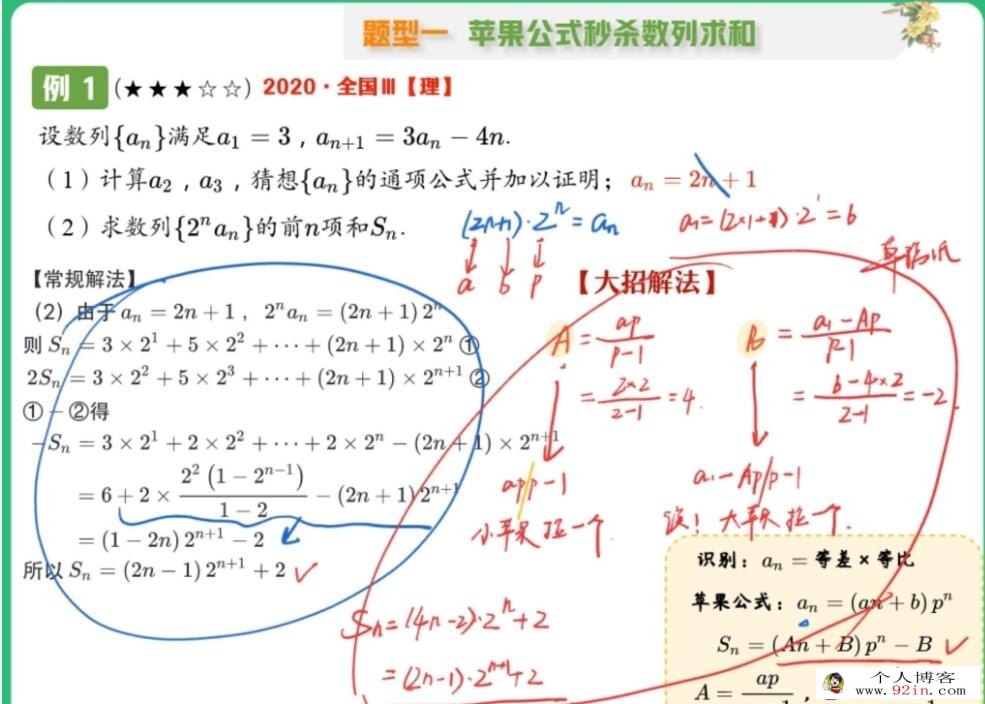 题型一 苹果公式秒杀数列求和
例 1 (★★★☆☆) 2020·全国Ⅲ【理】
设数列{aₙ}满足a₁ = 3，aₙ₊₁ = 3aₙ − 4n.
（1）计算a₂，a₃，猜想{aₙ}的通项公式并加以证明；aₙ = 2n + 1
（2）求数列{2ⁿaₙ}的前n项和Sₙ.
(2n+1)·2ⁿ = aₙ
a b p
a₁ = (2×1+1)·2¹ = 6
草稿纸
【常规解法】
(2) 由于 aₙ = 2n + 1， 2ⁿaₙ = (2n + 1) 2ⁿ
则 Sₙ = 3 × 2¹ + 5 × 2² + ··· + (2n + 1) × 2ⁿ ①
2Sₙ = 3 × 2² + 5 × 2³ + ··· + (2n + 1) × 2ⁿ⁺¹ ②
① − ②得
−Sₙ = 3 × 2¹ + 2 × 2² + ··· + 2 × 2ⁿ − (2n + 1) × 2ⁿ⁺¹
= 6 + 2 × 2² (1 − 2ⁿ⁻¹) / (1 − 2) − (2n + 1) 2ⁿ⁺¹
= (1 − 2n) 2ⁿ⁺¹ − 2
所以 Sₙ = (2n − 1) 2ⁿ⁺¹ + 2 ✓
【大招解法】
A = ap / (p−1)
= 2×2 / (2−1) = 4.
app−1
小苹果 拉一个
B = (a₁−Ap) / (p−1)
= (6−4×2) / (2−1) = −2.
a₁−Ap/p−1
大苹果 拉一个.
Sₙ = (4n−2)·2ⁿ+2
= (2n−1)·2ⁿ⁺¹+2
识别：aₙ = 等差 × 等比
苹果公式：aₙ = (an + b) pⁿ
Sₙ = (An + B) pⁿ − B ✓
A = ap
个人博客
www.92in.com